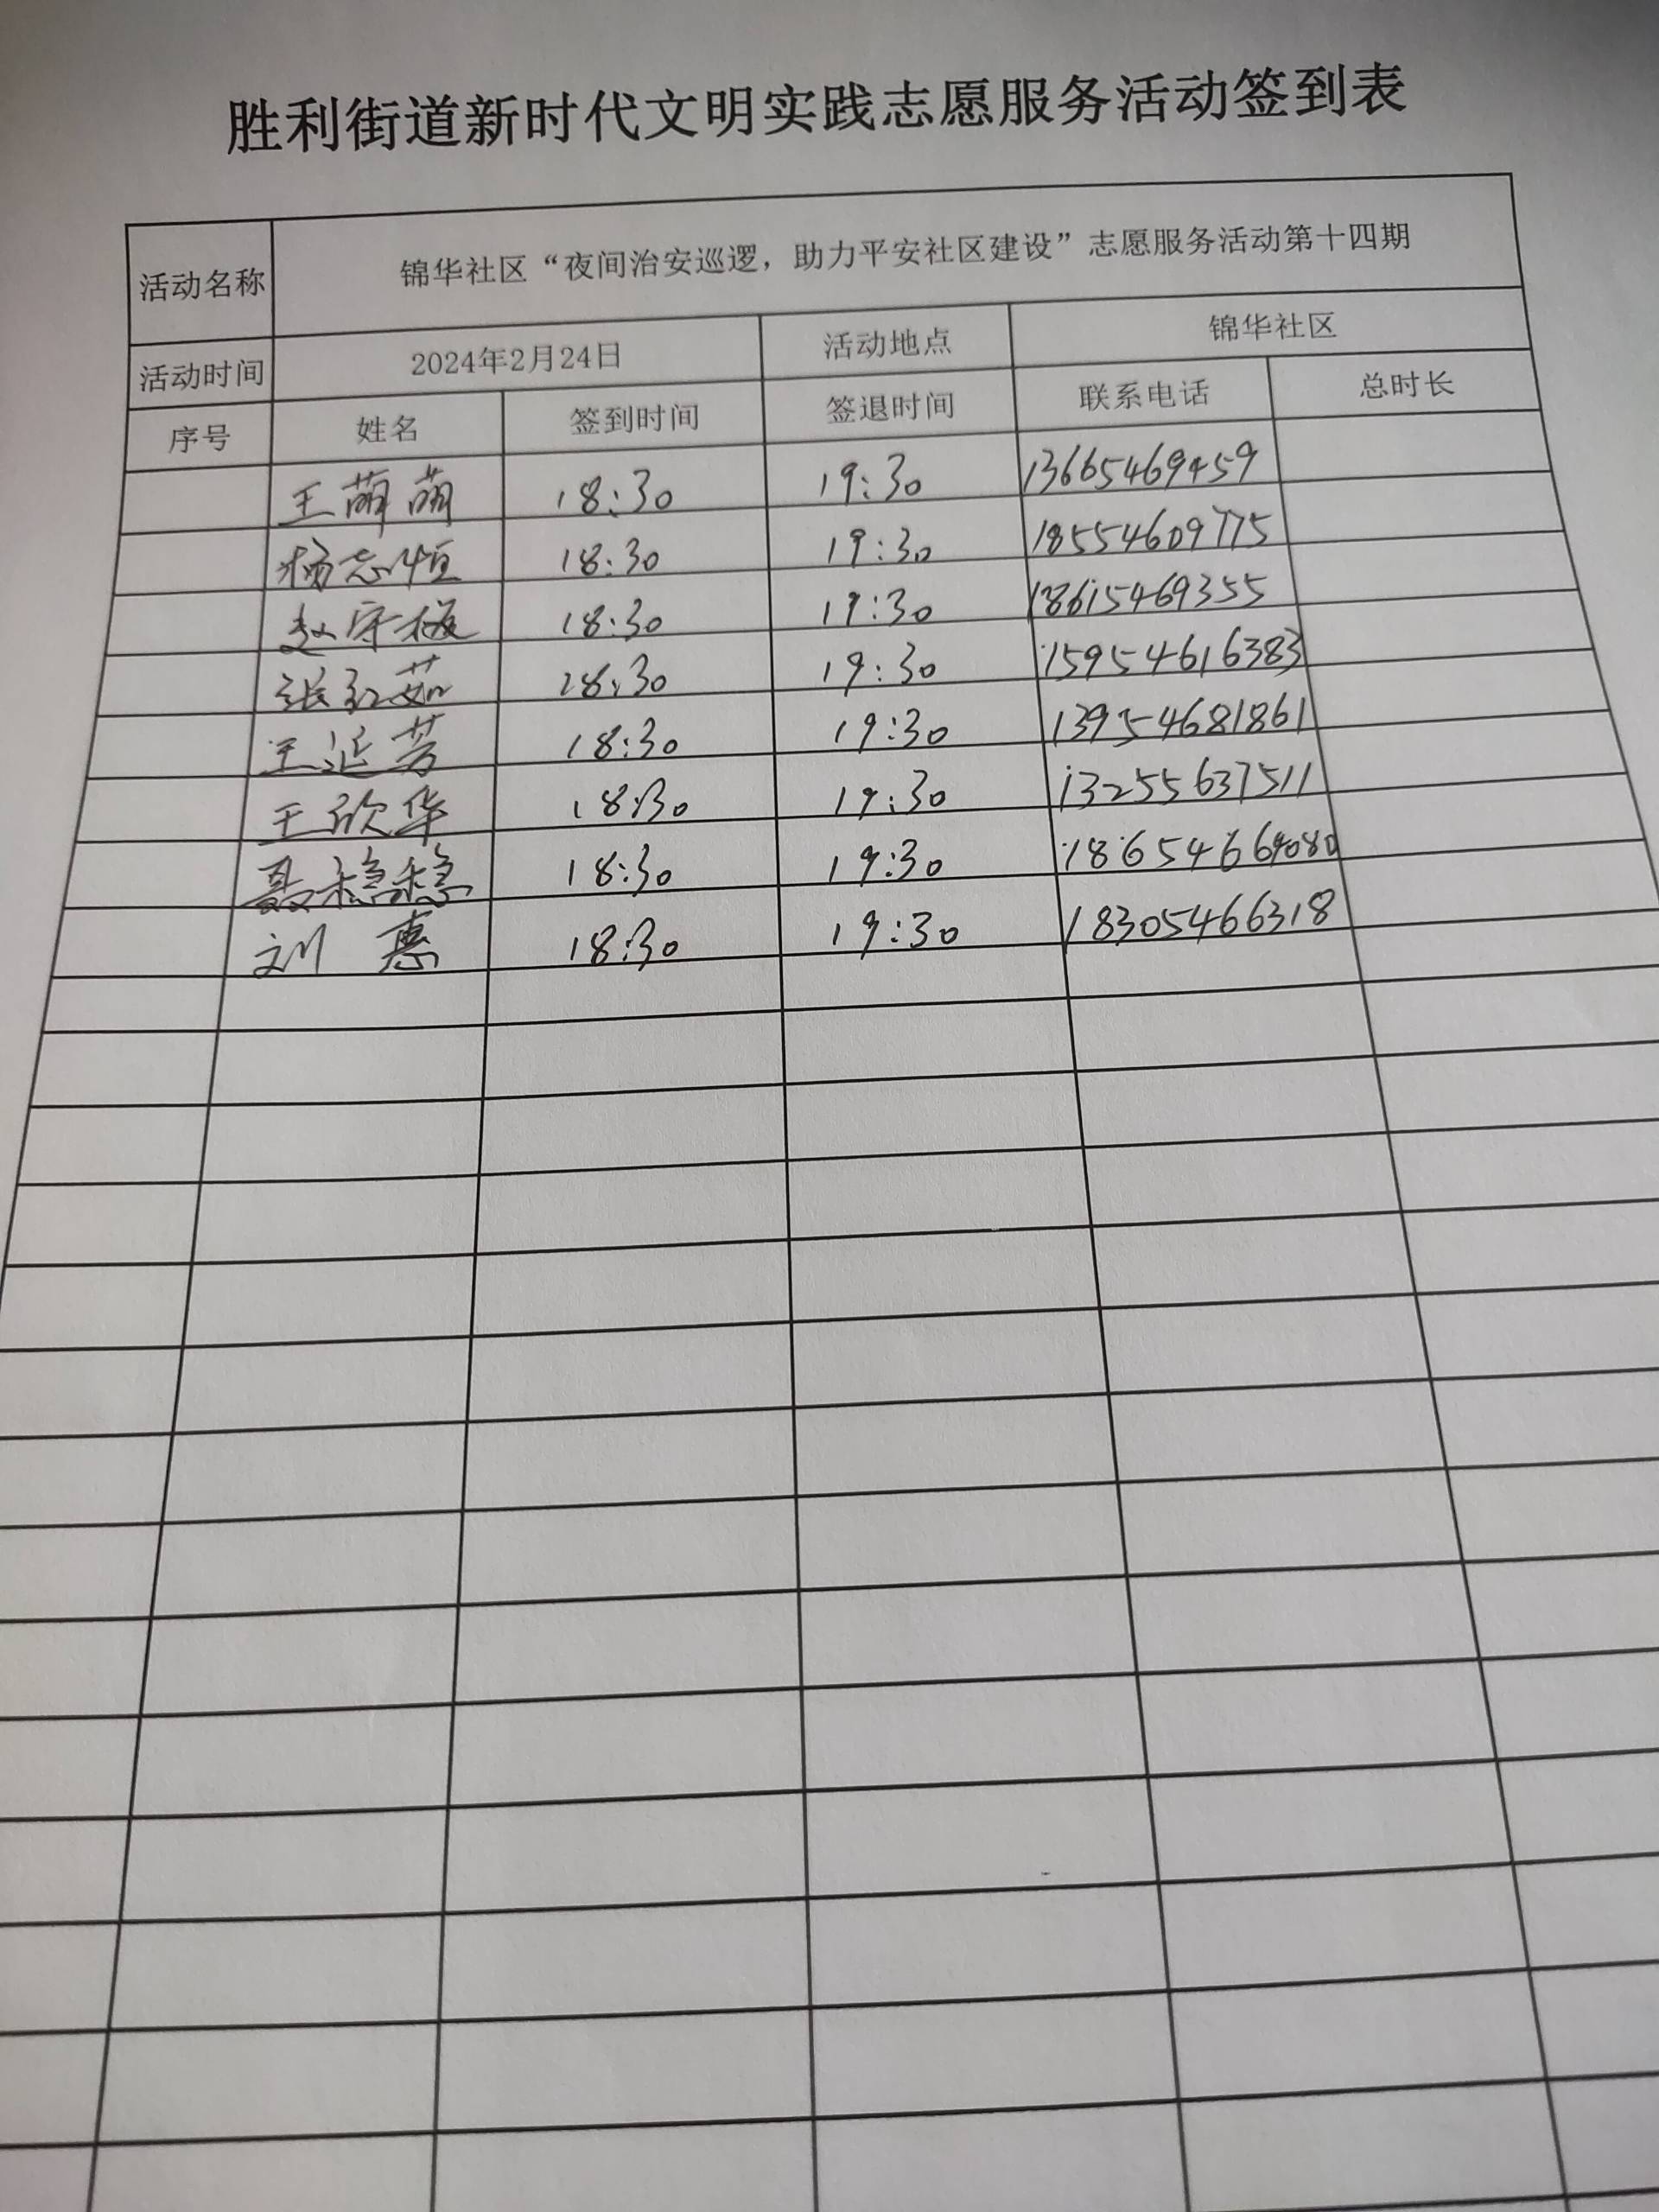 胜利街道新时代文明实践志愿服务活动签到表
活动名称 锦华社区“夜间治安巡逻，助力平安社区建设”志愿服务活动第十四期
活动时间 2024年2月24日 活动地点 锦华社区
序号 姓名 签到时间 签退时间 联系电话 总时长
王萌萌 18:30 19:30 13665469459
杨志恒 18:30 19:30 18554609775
赵守梅 18:30 19:30 18615469355
张红茹 18:30 19:30 15954616383
王延芳 18:30 19:30 13954681861
王欣华 18:30 19:30 13255637511
聂稳稳 18:30 19:30
刘惠 18:30 19:30 18305466318